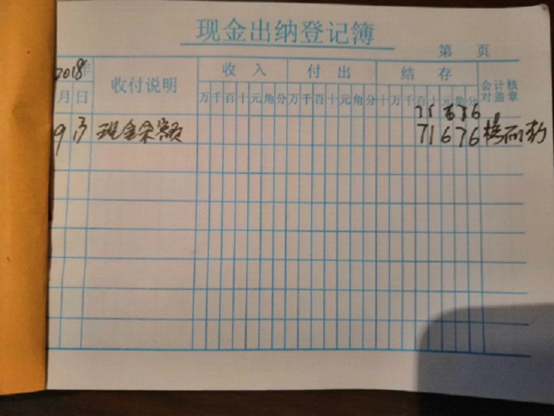 现金出纳登记簿
第 页
2018年 收付说明 收入 付出 结存 会计核对盖章
月 日 万千百十元角分 万千百十元角分 十万千百十元角分
71676
9 3 现金余额 71676